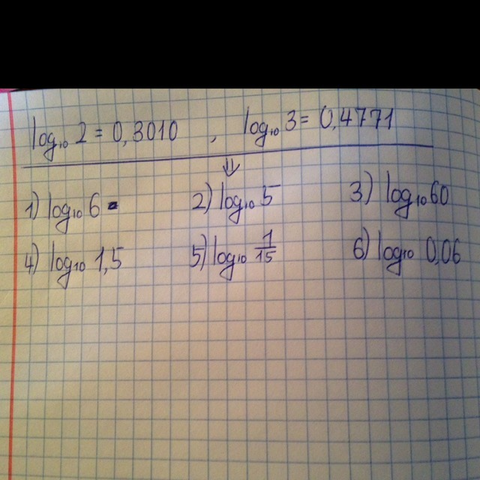 log₁₀ 2 = 0,3010 , log₁₀ 3 = 0,4771
⇓
1) log₁₀ 6 2) log₁₀ 5 3) log₁₀ 60
4) log₁₀ 1,5 5) log₁₀ 1/15 6) log₁₀ 0,06